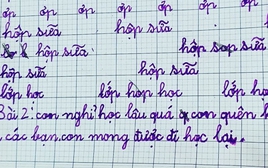 ớp ớp ớp ớp ớp
hộp sữa hộp sữa
hộp sữa hộp sữa
hộp sữa hộp sữa
lớp học lớp học lớp học
Bài 2: con nghỉ học lâu quá con quên
các bạn. con mong được đi học lại.